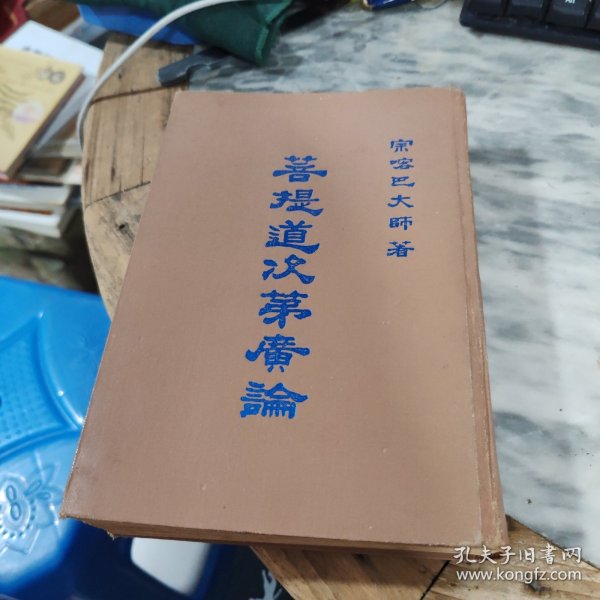 宗喀巴大師著
菩提道次第廣論
孔夫子旧书网
www.kongfz.com
8